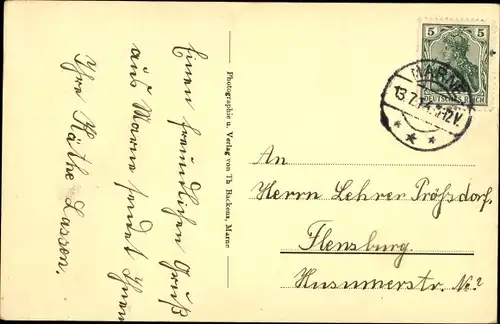 Einen freundlichen Gruß
aus Marne sendet Ihnen
Ihre Käthe Lassen.
Photographie u. Verlag von Th. Backens, Marne
5 5
DEUTSCHES REICH
MARNE
13.7.
12V.
An
Herrn Lehrer Pröhsdorf.
Flensburg.
Husumerstr. No. ?